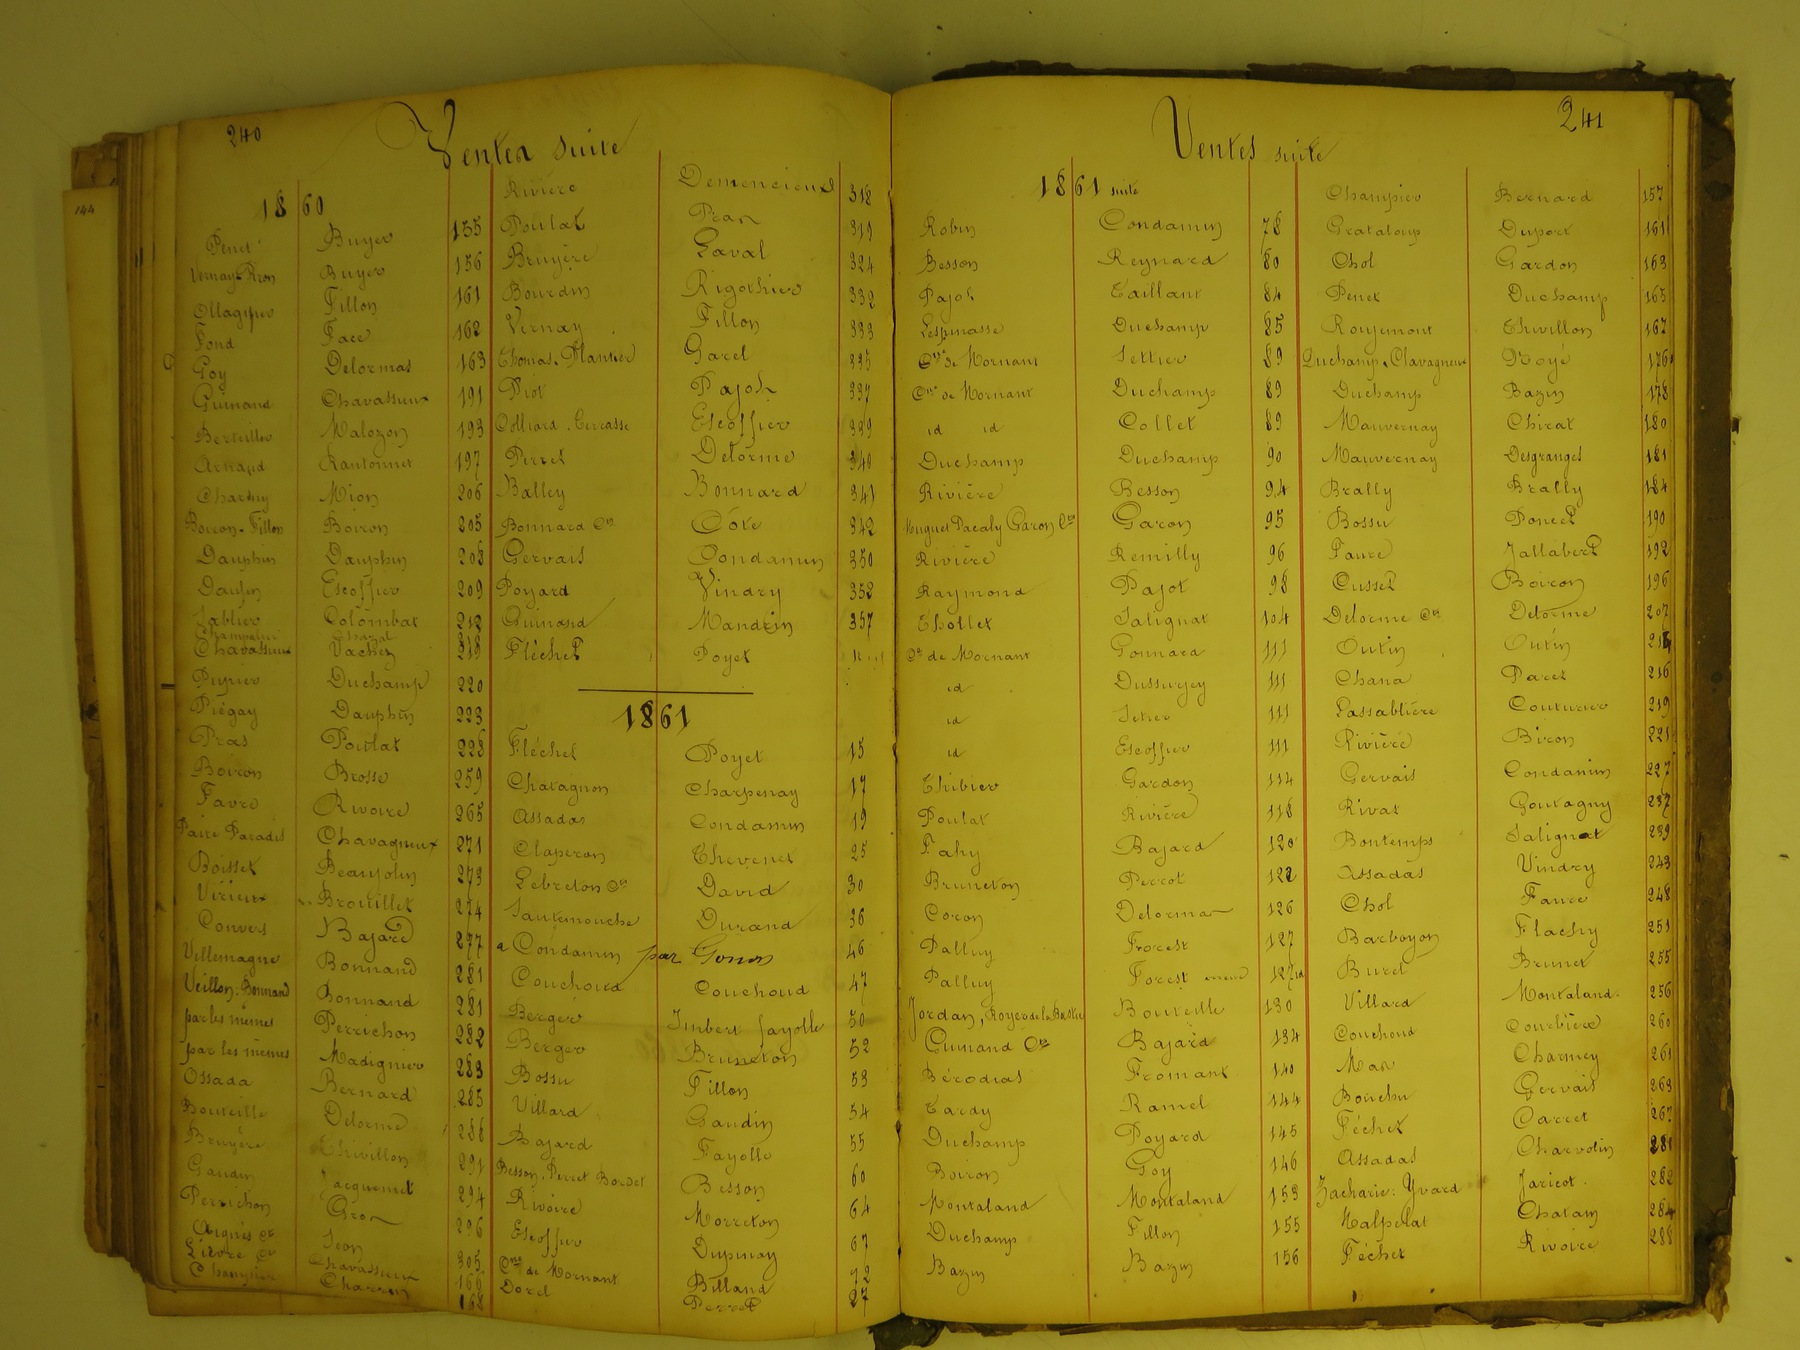 240
Ventes suite
1860
Penet Buyer 155
Vernay Rion Buyer 156
Ollagnier Fillon 161
Fond Face 162
Goy Delormas 163
Guinand Chavassieux 191
Berteiller Malozon 193
Arnaud Rantonnet 197
Mion 206
Boiron-Fillon Boiron 205
Dauphin Dauphin 208
Escoffier 209
Sablier Colombat 212
Champalier Chazal
Chavassieux Vachez 218
Duchamp 220
Piégay Dauphin 223
Pras Poulat 228
Boiron Brosse 259
Favre Rivoire 265
Paire Paradis Chavagneux 271
Boisset Beaujolin 273
Virieux Brouillet 274
Convers Bajard 277
Villemagne Bonnand 281
Veillon. Bonnand Bonnand 281
par les mêmes Perrichon 282
par les mêmes Madignier 283
Ossada Bernard 285
Bouteille Delorme 288
Bruyère Thivillon 291
Gaudin Jacquemet 294
Perrichon Gron 296
Jeon 305
Lièvre Chavassieux 168
Charrin 168
Rivière Demencieux 318
Poulat Pras 319
Bruyère Laval 324
Bourdin Rigothier 332
Vernay Fillon 333
Thomas. Plantier Garel 335
Piot Pajot 337
Colliard. Terrasse Escoffier 339
Perret Delorme 340
Balley Bonnard 341
Bonnard Cote 342
Gervais Condamin 350
Poyard Vindry 352
Guinand Mandrin 357
Fléchet Poyet
1861
Fléchet Poyet 15
Chatagnon Charpenay 17
Assadas Condamin 19
Claperon Thevenet 25
Lebreton David 30
Sautemouche Durand 36
a Condamin par Gonon 46
Couchoud Couchoud 47
Berger Imbert fayolle 50
Berger Bruneton 52
Bossu Fillon 53
Villard Gaudin 54
Bajard Fayolle 55
Besson. Perret Bordet Besson 60
Rivoire Morreton 64
Escoffier Dupinay 67
Cne de Mornant Billand 72
Dorel Perret 27
241
Ventes suite
1861 suite
Robin Condamin 78
Besson Reynard 80
Pajot Taillant 84
Lespinasse Duchamp 85
Cne de Mornant Settier 89
Cne de Mornant Duchamp 89
id id Collet 89
Duchamp Duchamp 90
Rivière Besson 94
Garon 95
Rivière Remilly 96
Raymond Pajot 98
Thollet Salignat 104
Ce de Mornant Gonnard 111
id Dussurgey 111
id Setier 111
id Escoffier 111
Thibier Gardon 114
Poulat Rivière 118
Fahy Bajard 120
Bruneton Perrot 122
Coron Delorma 126
Palluy Forest 127
Palluy Forest 127
Jordan, Royer de la Bastie Bouteille 130
Guinand Bajard 134
Bérodias Fromant 140
Tardy Ramel 144
Duchamp Poyard 145
Boiron Goy 146
Montaland Montaland 153
Duchamp Fillon 155
Bazin Bazin 156
Champier Bernard 157
Grataloup Duport 161
Chol Gardon 163
Penet Duchamp 165
Rougemont Thivillon 167
Duchamp. Clavagneux Noyé 176
Duchamp Bazin 178
Mauvernay Chirat 180
Mauvernay Desgranges 181
Brally Brally 184
Bossu Poncet 190
Faure Jallabert 192
Cusset Boiron 196
Delorme Delorme 207
Outin Outin 214
Chana Paret 216
Lassablière Couturier 219
Rivière Biron 221
Gervais Condamin 227
Rivat Goutagny 237
Bontemps Salignat 239
Assadas Vindry 243
Chol Faure 248
Barboyon Flachy 251
Buret Brunet 255
Villard Montaland. 256
Couchoud Courbière 260
Mas Charmey 261
Bouchu Gervais 263
Féchet Carret 267
Assadas Charvolin 281
Zacharie: Yvard Jaricot. 282
Malpelat Chatain 284
Féchet Rivoire 288
144